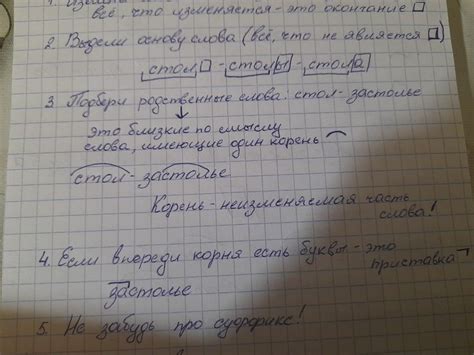 всё, что изменяется - это окончание
2. Выдели основу слова (всё, что не является
стол - столы - стола
3. Подбери родственные слова: стол - застолье
это близкие по смыслу
слова, имеющие один корень
стол - застолье
Корень - неизменяемая часть
слова!
4. Если впереди корня есть буквы - это
приставка
застолье
5. Не забудь про суффикс!